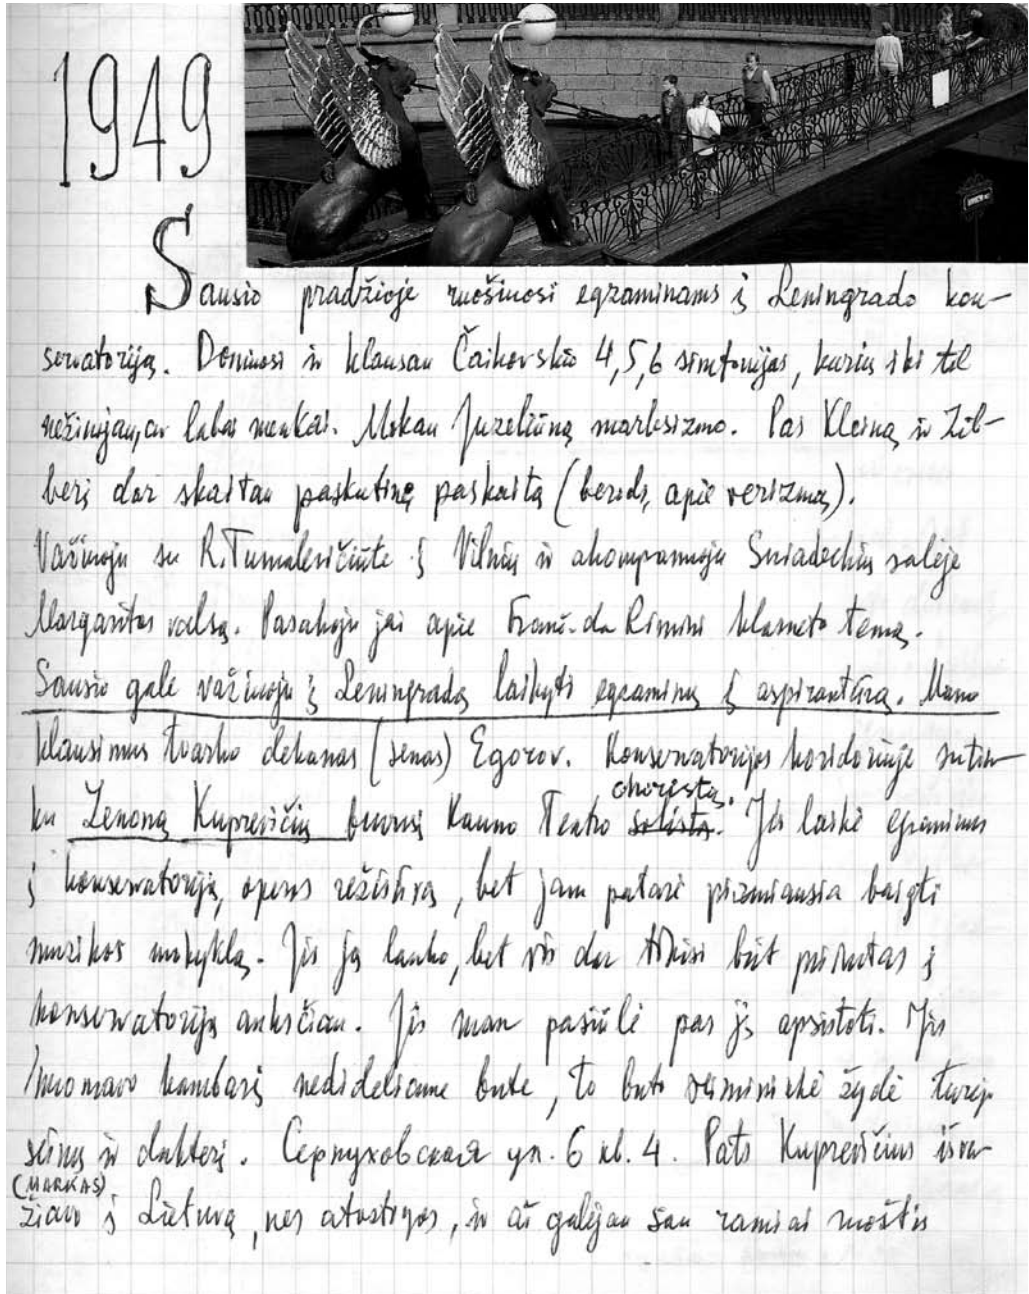 1949
Sausio pradžioje ruošiuosi egzaminams į Leningrado kon-
servatoriją. Domiuosi ir klausau Čaikovskio 4,5,6 simfonijas, kurių iki tol
nežinojau, ar labai menkai. Mokau Juzeliūną marksizmo. Pas Kleiną ir Zil-
berį dar skaitau paskutinę paskaitą (berods, apie verizmą).
Važiuoju su R. Tumalevičiūte į Vilnių ir akompanuoju Sniadeckių salėje
Margaritos valsą. Pasakoju jai apie Franč. da Rimini klarneto temą.
Sausio gale važiuoju į Leningradą laikyti egzaminų į aspirantūrą. Mano
klausimus tvarko dekanas (senas) Egorov. Konservatorijos koridoriuje sutin-
ku Zenoną Kuprevičių buvusį Kauno Teatro solistą choristą. Jis laikė egzaminus
į konservatoriją, operos režisūrą, bet jam patarė pirmiausia baigti
muzikos mokyklą. Jis ją lanko, bet vis dar tikisi būt priimtas į
konservatoriją anksčiau. Jis man pasiūlė pas jį apsistoti. Jis
nuomavo kambarį nedideliame bute, to buto šeimininkė žydė turėjo
sūnų ir dukterį. Серпуховская ул. 6 кв. 4. Pats Kuprevičius išva-
(MARKAS)
žiavo į Lietuvą, nes atostogos, ir aš galėjau sau ramiai ruoštis